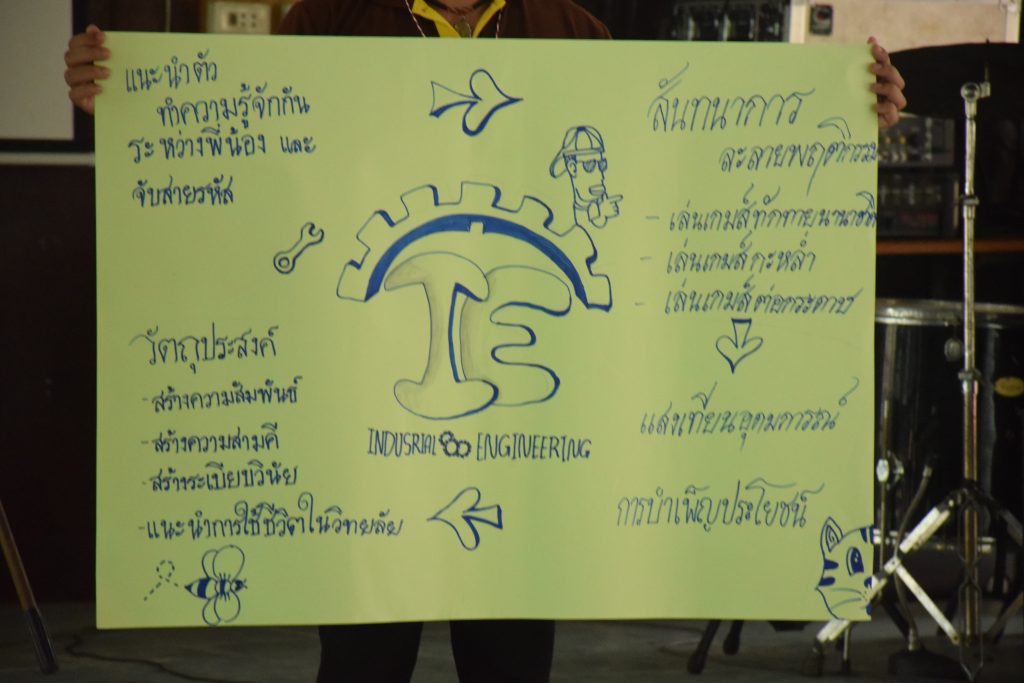 แนะนำตัว
ทำความรู้จักกัน
ระหว่างพี่น้อง และ
จับสายรหัส
สันทนาการ
ละลายพฤติกรรม
- เล่นเกมส์ทักทายนานาชาติ
- เล่นเกมส์กะหล่ำ
- เล่นเกมส์ต่อกระดาษ
แสงเทียนอุดมการณ์
การบำเพ็ญประโยชน์
IE
INDUSRIAL ENGINEERING
วัตถุประสงค์
- สร้างความสัมพันธ์
- สร้างความสามคี
- สร้างระเบียบวินัย
- แนะนำการใช้ชีวิตในวิทยลัย